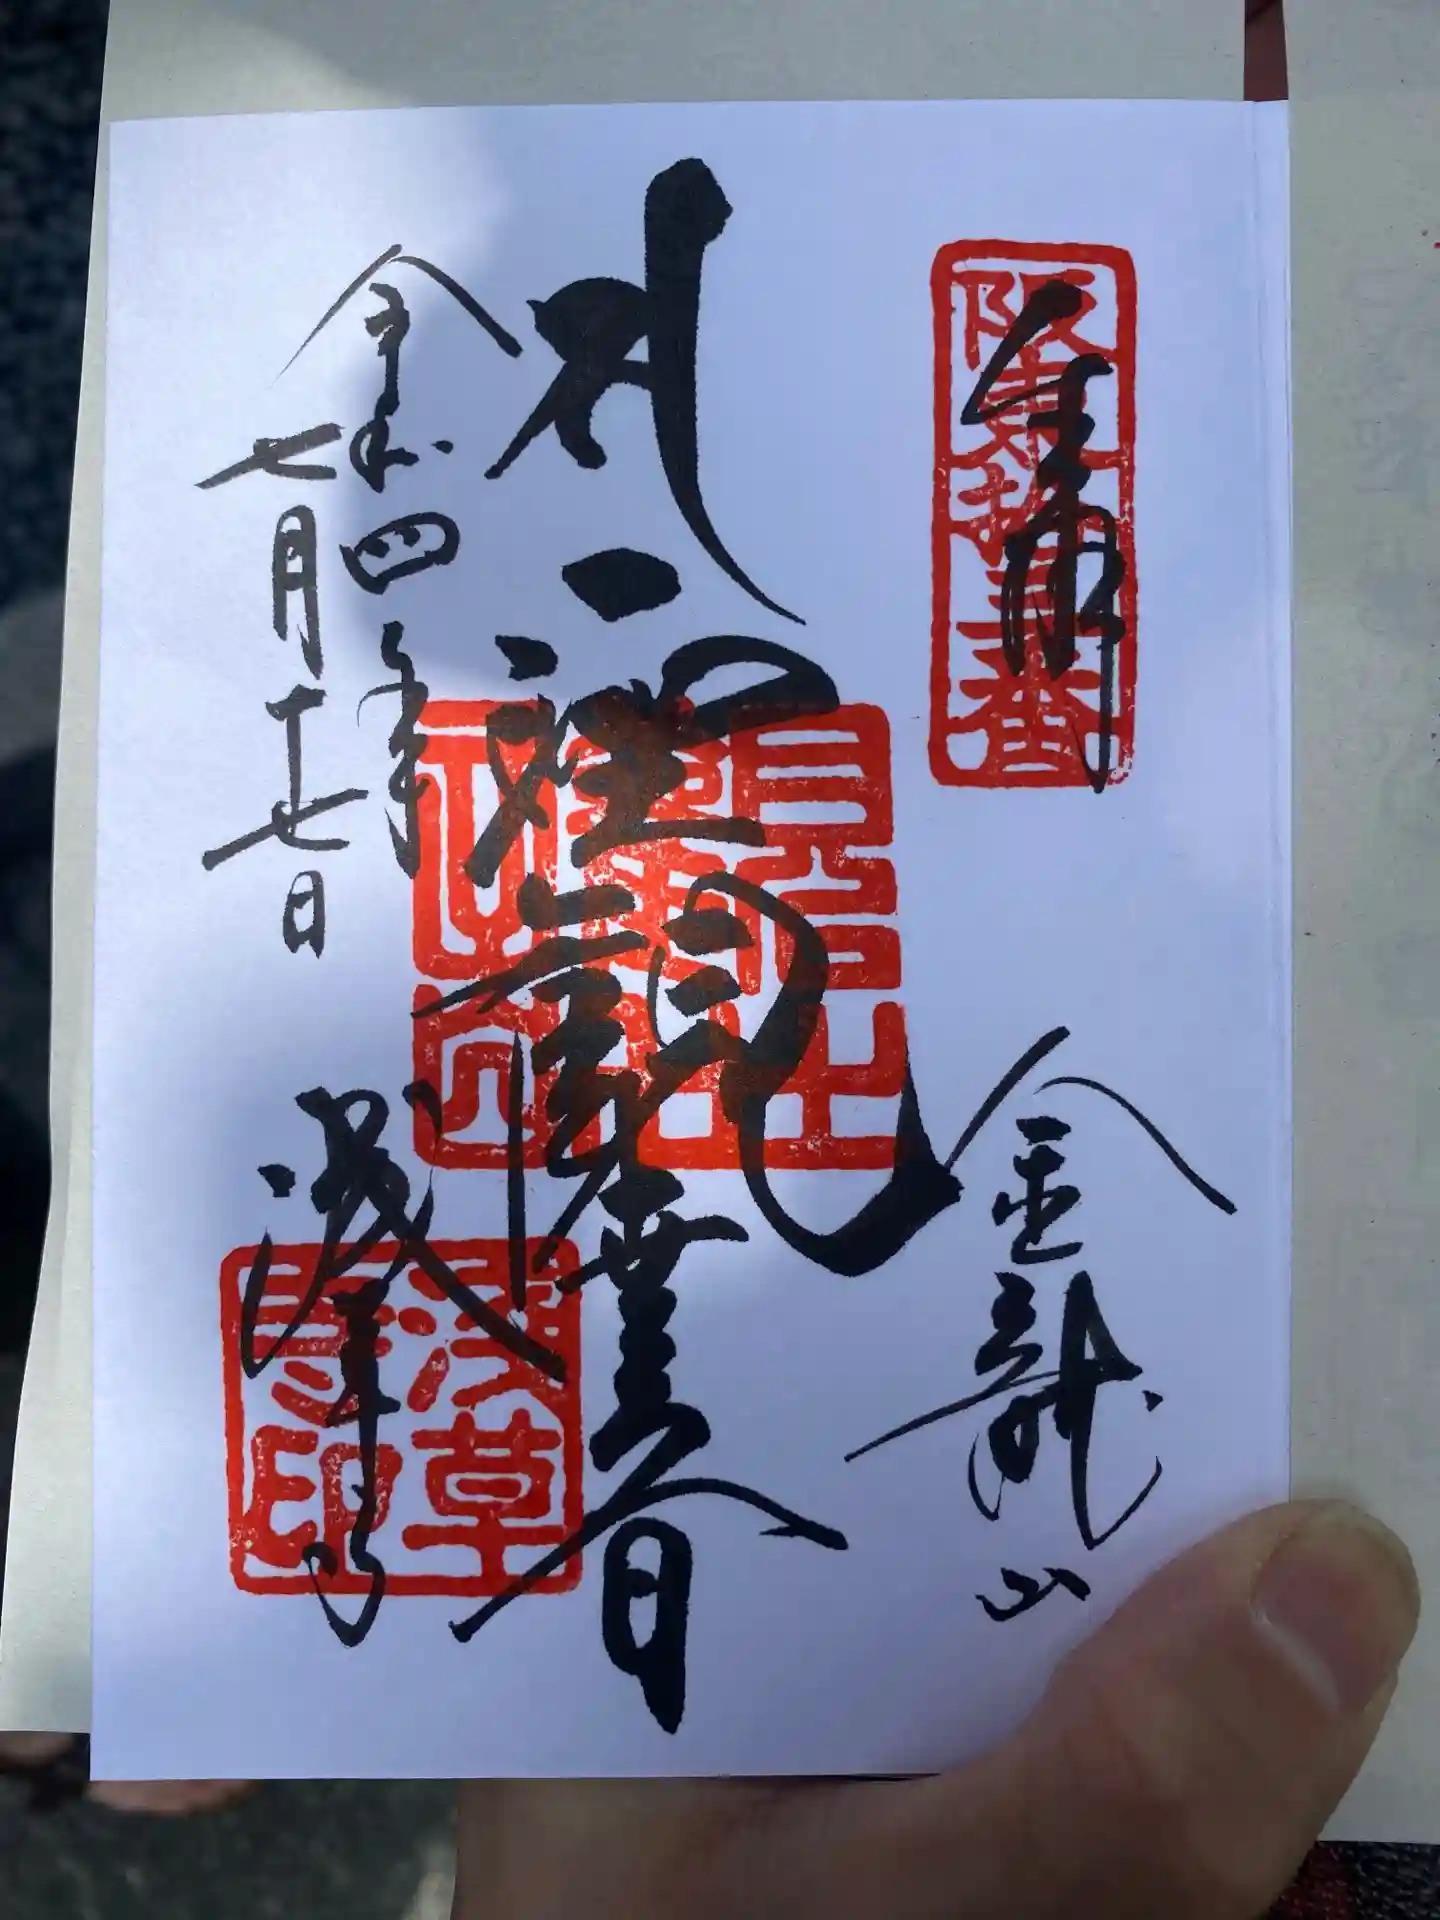 奉拝
阪東拾三番
金龍山
聖観世音
令和四年
七月十七日
浅草寺
浅草
寺印